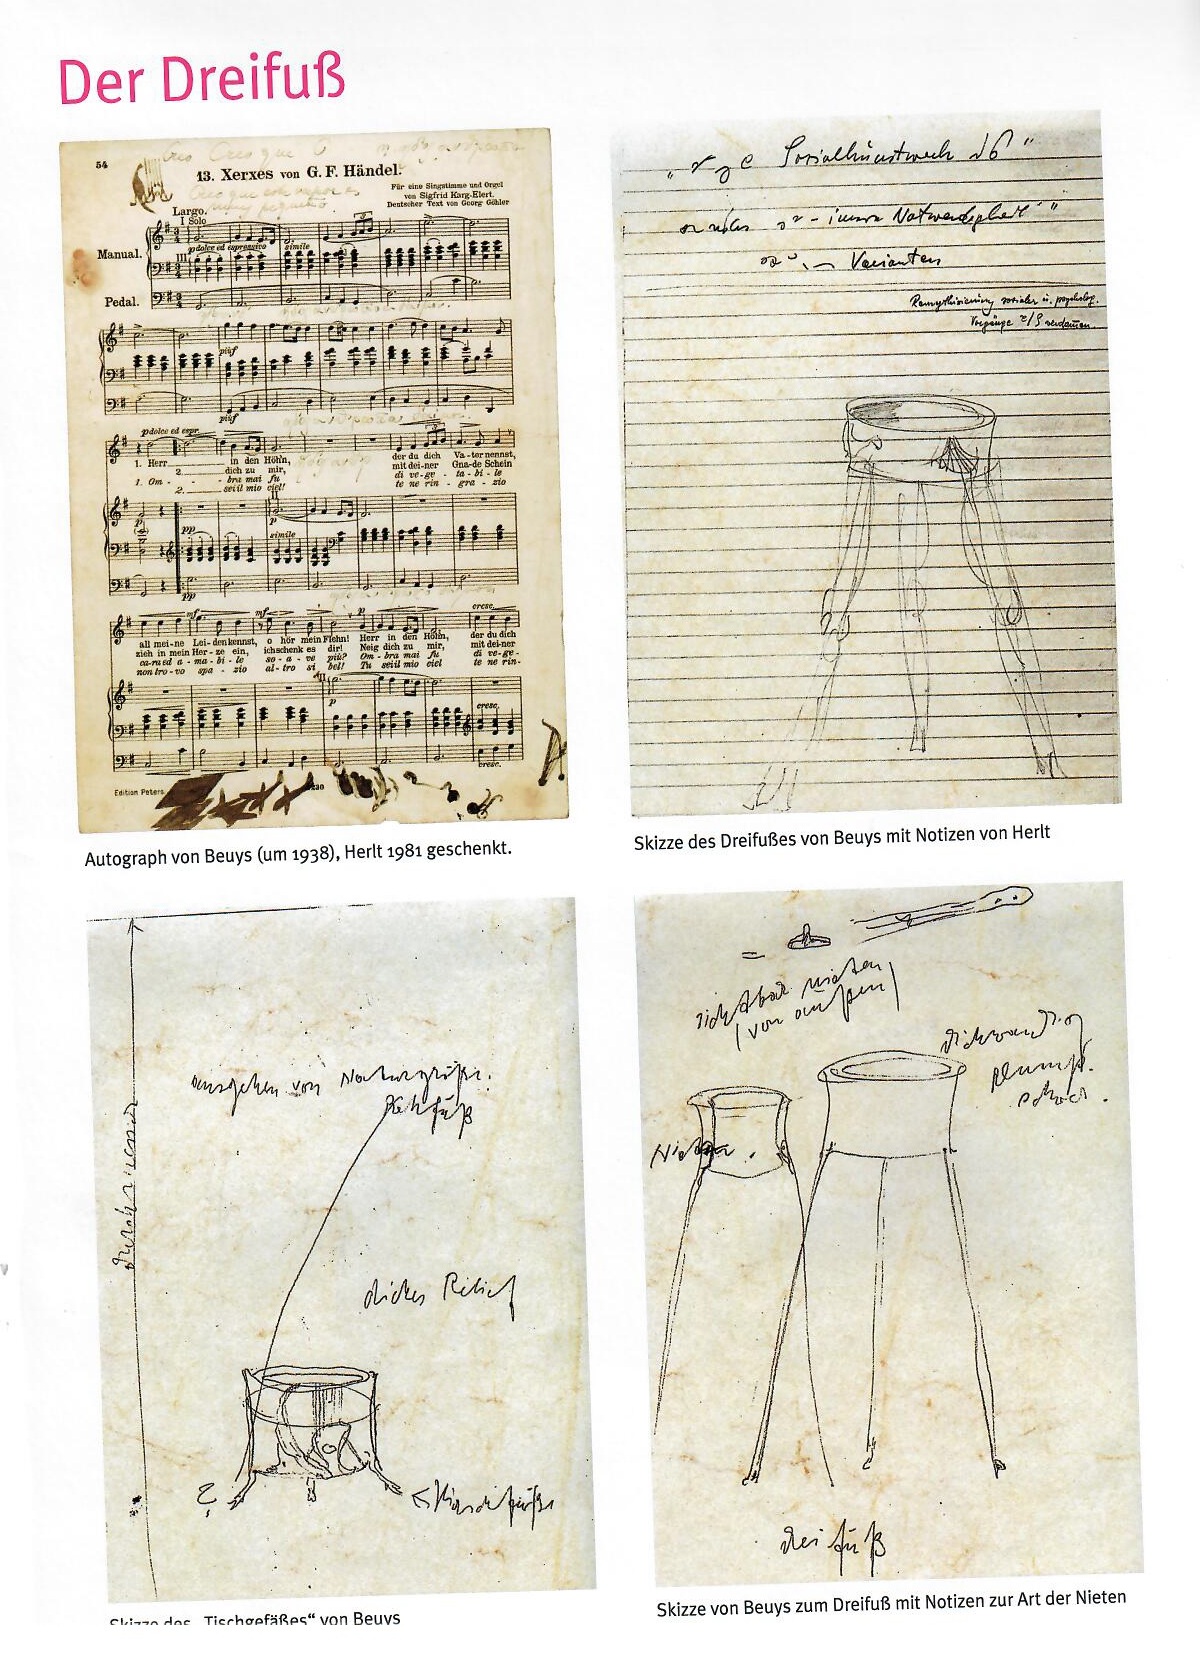 Der Dreifuß
54
13. Xerxes von G. F. Händel.
Für eine Singstimme und Orgel
von Sigfrid Karg-Elert.
Deutscher Text von Georg Göhler
Largo.
I Solo
Manual.
pdolce ed espressivo
simile
III
Pedal.
più f
più f
pdolce ed espr.
1. Herr in den Höhn, der du dich Va-ter nennst,
2. dich zu mir, mit dei-ner Gna-de Schein
1. Om - bra mai fu di ve-ge - ta-bi-le
2. sei il mio ciel! te ne rin - gra - zio
II
p
p
pp
simile
pp
mf
mf
p
cresc.
all mei-ne Lei-den kennst, o hör mein Flehn! Herr in den Höhn, der du dich
zieh in mein Her-ze ein, ich schenk es dir! Neig dich zu mir, mit dei-ner
ca-ra ed a-ma-bi-le so-a-ve più? Om-bra mai fu di ve-ge-
non tro-vo spa-zio al-tro si bel! Tu sei il mio ciel te ne rin-
II
p
cresc.
cresc.
Edition Peters.
Autograph von Beuys (um 1938), Herlt 1981 geschenkt.
Sozialkunstwerk
innere Notwendigkeit"
Varianten
Remythisierung sozialer u. psycholog.
Vorgänge
Skizze des Dreifußes von Beuys mit Notizen von Herlt
ausgehen von Naturgröße.
Rehfuß
dickes Relief
?
Skizze des „Tischgefäßes“ von Beuys
=
sichtbar nieten
(von außen)
dickwandig
plump.
Nieten
Dreifuß
Skizze von Beuys zum Dreifuß mit Notizen zur Art der Nieten